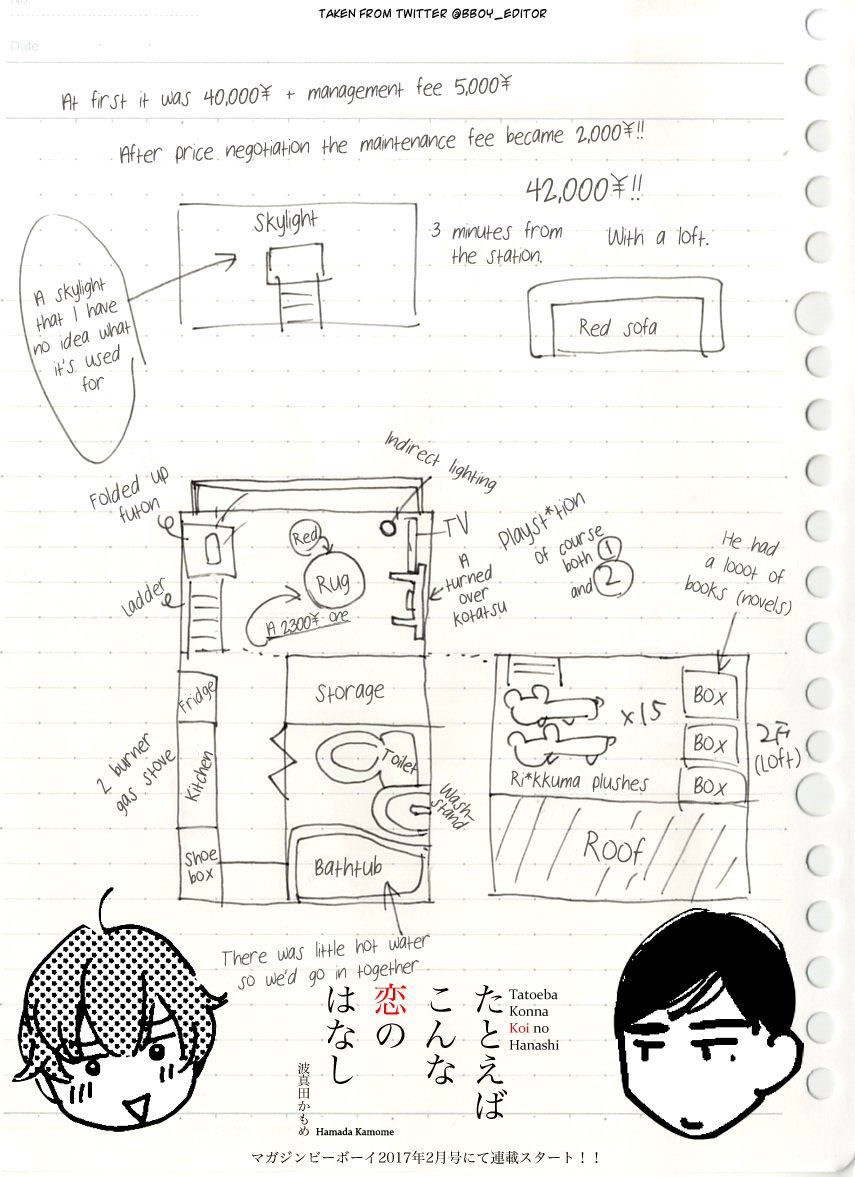 TAKEN FROM TWITTER @BBOY_EDITOR
No.
Date
At first it was 40,000¥ + management fee 5,000¥
After price negotiation the maintenance fee became 2,000¥!!
42,000¥!!
3 minutes from
the station.
With a loft.
Skylight
A skylight
that I have
no idea what
it's used
for
Red sofa
Indirect lighting
Folded up
futon
TV
Playst*tion
of course
both 1
and 2
He had
a looot of
books (novels)
Red
Rug
A
turned
over
kotatsu
Ladder
A 2300¥ one
Fridge
Storage
x15
BOX
BOX
BOX
2F
(Loft)
Ri*kkuma plushes
2 burner
gas stove
Kitchen
Toilet
Wash-
stand
Roof
Shoe
box
Bathtub
There was little hot water
so we'd go in together
たとえば
こんな
恋の
はなし
Tatoeba
Konna
Koi no
Hanashi
波真田かもめ
Hamada Kamome
マガジンビーボーイ2017年2月号にて連載スタート！！